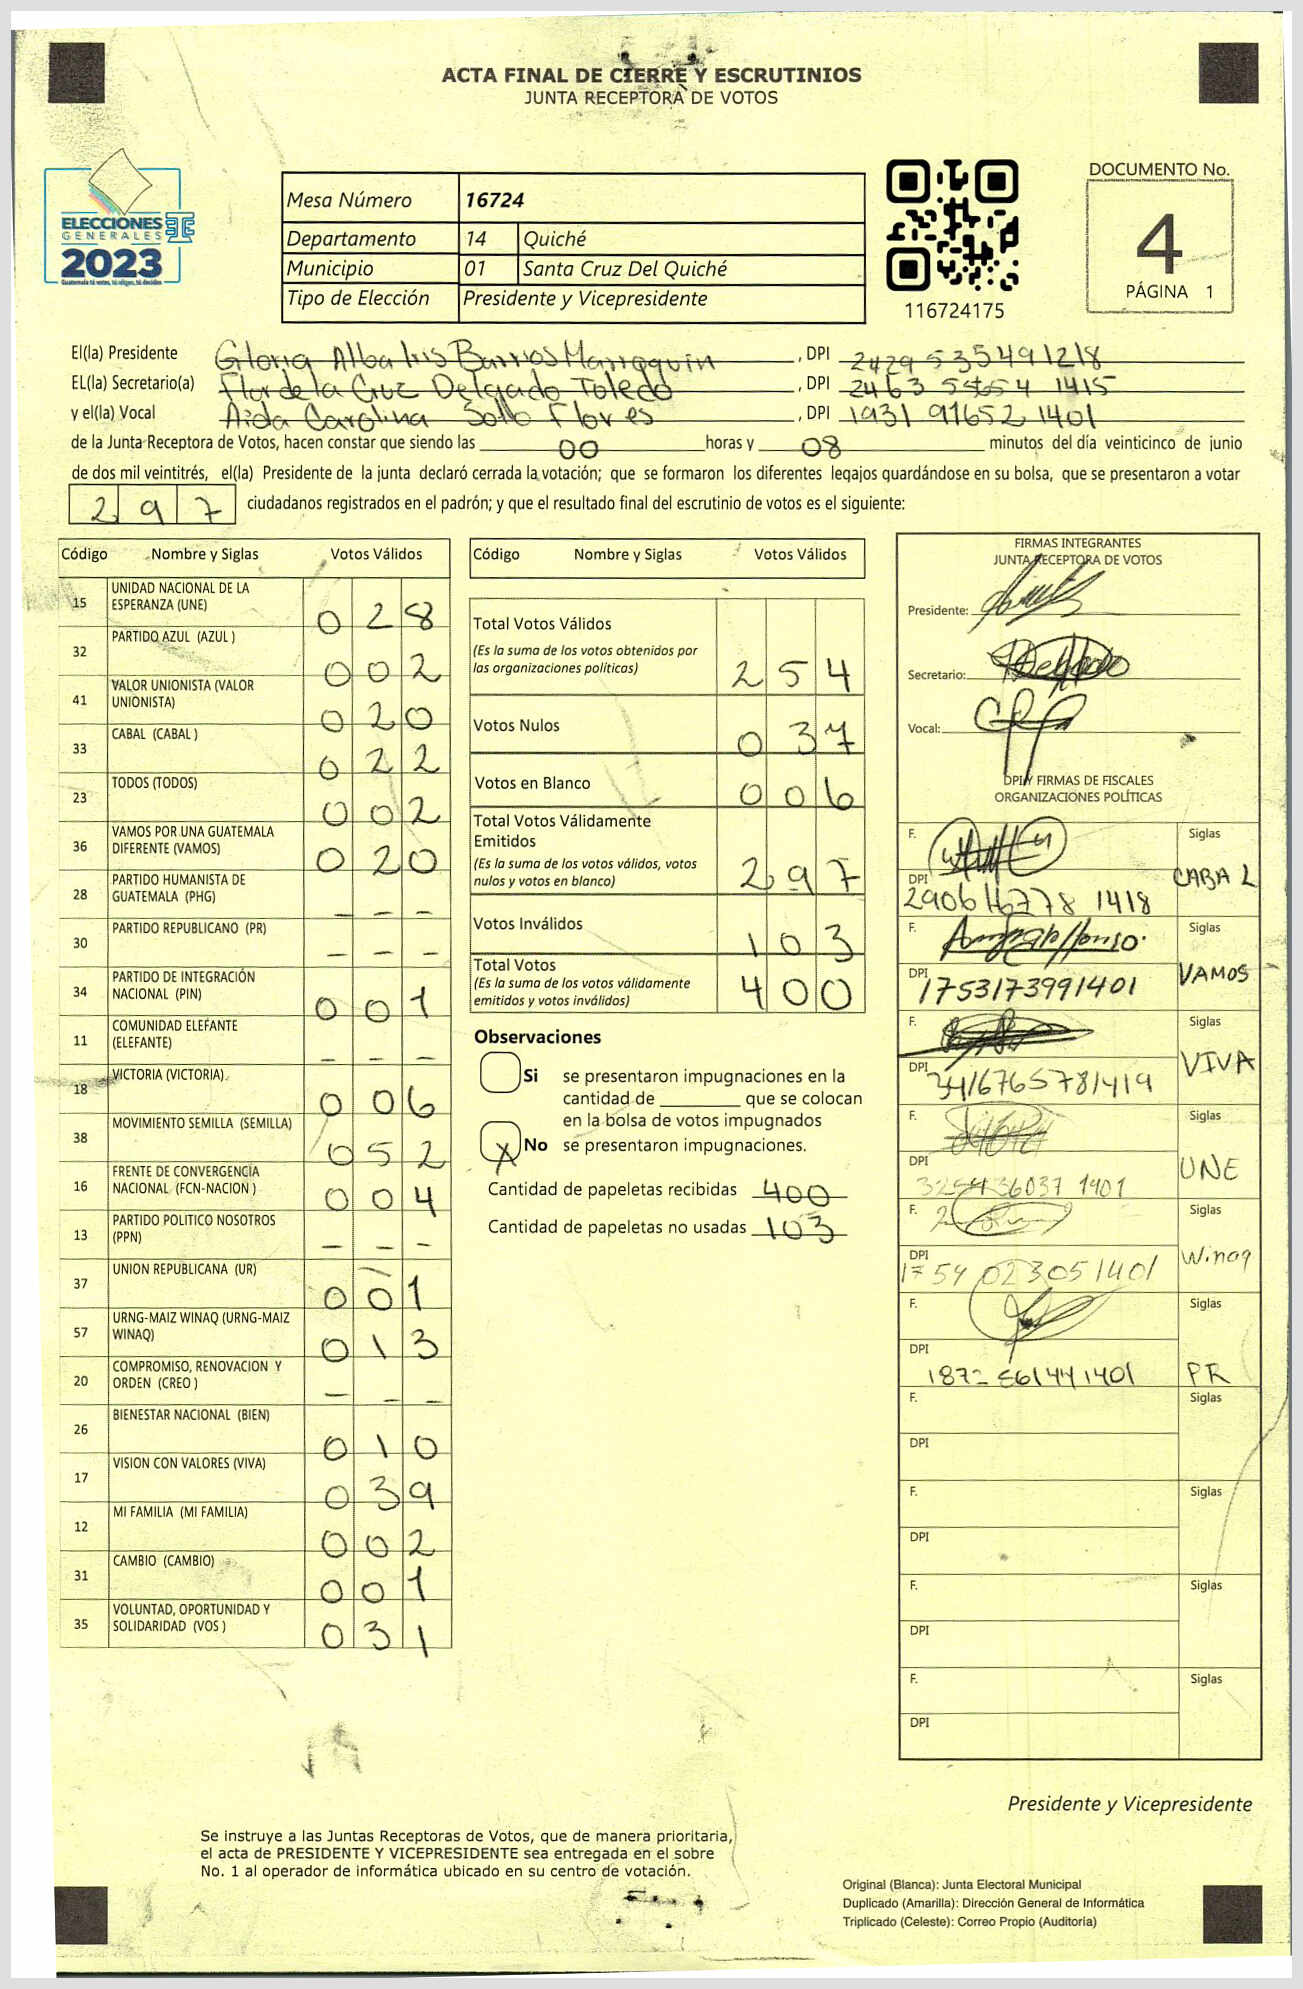 ACTA FINAL DE CIERRE Y ESCRUTINIOS
JUNTA RECEPTORA DE VOTOS
ELECCIONES
GENERALES
2023
Guatemala tú votas, tú eliges, tú decides
Mesa Número 16724
Departamento 14 Quiché
Municipio 01 Santa Cruz Del Quiché
Tipo de Elección Presidente y Vicepresidente
116724175
DOCUMENTO No.
4
PÁGINA 1
El(la) Presidente Gloria Alba Iris Barrios Marroquin , DPI 2429 53549 1218
EL(la) Secretario(a) Flor de la Cruz Delgado Toledo , DPI 2463 1415
y el(la) Vocal Aida Carolina Flores , DPI 1931 91652 1401
de la Junta Receptora de Votos, hacen constar que siendo las 00 horas y 08 minutos del día veinticinco de junio
de dos mil veintitrés, el(la) Presidente de la junta declaró cerrada la votación; que se formaron los diferentes legajos guardándose en su bolsa, que se presentaron a votar
297 ciudadanos registrados en el padrón; y que el resultado final del escrutinio de votos es el siguiente:
Código Nombre y Siglas Votos Válidos
15 UNIDAD NACIONAL DE LA
ESPERANZA (UNE) 0 2 8
32 PARTIDO AZUL (AZUL ) 0 0 2
41 VALOR UNIONISTA (VALOR
UNIONISTA) 0 2 0
33 CABAL (CABAL ) 0 2 2
23 TODOS (TODOS) 0 0 2
36 VAMOS POR UNA GUATEMALA
DIFERENTE (VAMOS) 0 2 0
28 PARTIDO HUMANISTA DE
GUATEMALA (PHG) - - -
30 PARTIDO REPUBLICANO (PR) - - -
34 PARTIDO DE INTEGRACIÓN
NACIONAL (PIN) 0 0 1
11 COMUNIDAD ELEFANTE
(ELEFANTE) - - -
18 VICTORIA (VICTORIA) 0 0 6
38 MOVIMIENTO SEMILLA (SEMILLA) 0 5 2
16 FRENTE DE CONVERGENCIA
NACIONAL (FCN-NACION ) 0 0 4
13 PARTIDO POLITICO NOSOTROS
(PPN) - - -
37 UNION REPUBLICANA (UR) 0 0 1
57 URNG-MAIZ WINAQ (URNG-MAIZ
WINAQ) 0 1 3
20 COMPROMISO, RENOVACION Y
ORDEN (CREO ) - - -
26 BIENESTAR NACIONAL (BIEN) 0 1 0
17 VISION CON VALORES (VIVA) 0 3 9
12 MI FAMILIA (MI FAMILIA) 0 0 2
31 CAMBIO (CAMBIO) 0 0 1
35 VOLUNTAD, OPORTUNIDAD Y
SOLIDARIDAD (VOS ) 0 3 1
Código Nombre y Siglas Votos Válidos
Total Votos Válidos
(Es la suma de los votos obtenidos por
las organizaciones políticas) 2 5 4
Votos Nulos 0 3 7
Votos en Blanco 0 0 6
Total Votos Válidamente
Emitidos
(Es la suma de los votos válidos, votos
nulos y votos en blanco) 2 9 7
Votos Inválidos 1 0 3
Total Votos
(Es la suma de los votos válidamente
emitidos y votos inválidos) 4 0 0
Observaciones
Si se presentaron impugnaciones en la
cantidad de ________ que se colocan
en la bolsa de votos impugnados
X No se presentaron impugnaciones.
Cantidad de papeletas recibidas 400
Cantidad de papeletas no usadas 103
FIRMAS INTEGRANTES
JUNTA RECEPTORA DE VOTOS
Presidente:
Secretario:
Vocal:
DPI Y FIRMAS DE FISCALES
ORGANIZACIONES POLÍTICAS
F. Siglas
CABAL
DPI 1418
F. Siglas
VAMOS
DPI 1753173991401
F. Siglas
VIVA
DPI 3416765781419
F. Siglas
UNE
DPI 36037 1401
F. Siglas
Winaq
DPI 1754 023051401
F. Siglas
PR
DPI 61441401
F. Siglas
DPI
F. Siglas
DPI
F. Siglas
DPI
F. Siglas
DPI
Presidente y Vicepresidente
Se instruye a las Juntas Receptoras de Votos, que de manera prioritaria,
el acta de PRESIDENTE Y VICEPRESIDENTE sea entregada en el sobre
No. 1 al operador de informática ubicado en su centro de votación.
Original (Blanca): Junta Electoral Municipal
Duplicado (Amarilla): Dirección General de Informática
Triplicado (Celeste): Correo Propio (Auditoría)